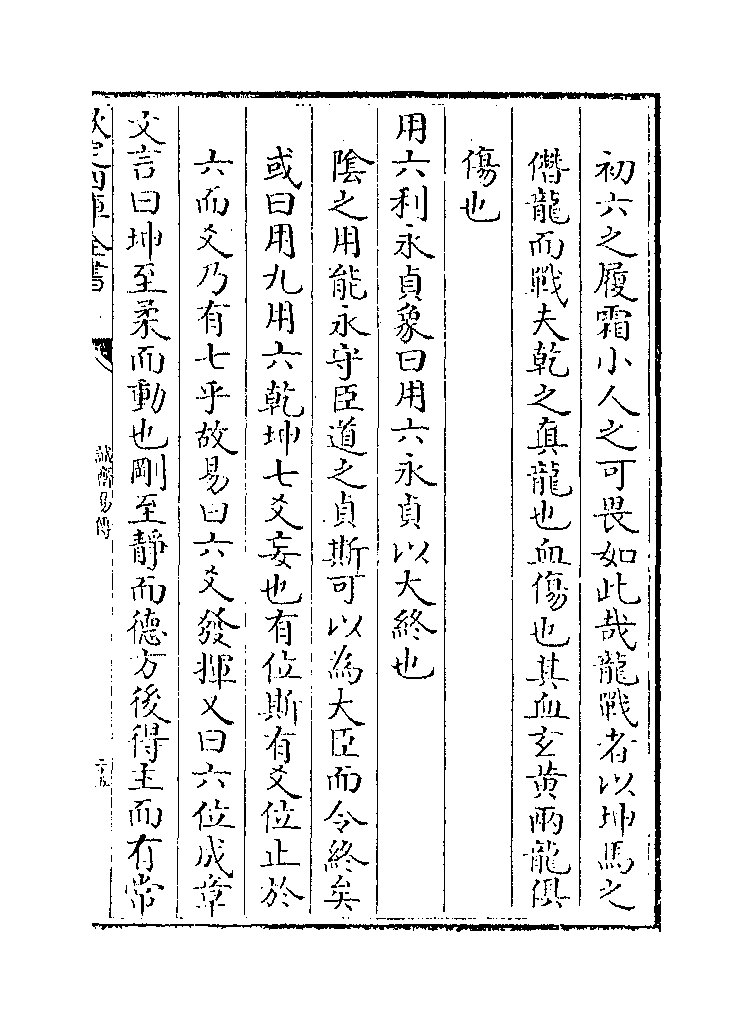 初六之履霜小人之可畏如此哉龍戰者以坤馬之
僭龍而戰夫乾之真龍也血傷也其血玄黄兩龍俱
傷也
用六利永貞象曰用六永貞以大終也
隂之用能永守臣道之貞斯可以為大臣而令終矣
或曰用九用六乾坤七爻妄也有位斯有爻位止於
六而爻乃有七乎故易曰六爻發揮又曰六位成章
文言曰坤至柔而動也剛至靜而德方後得主而有常
欽定四庫全書
誠齋易傳